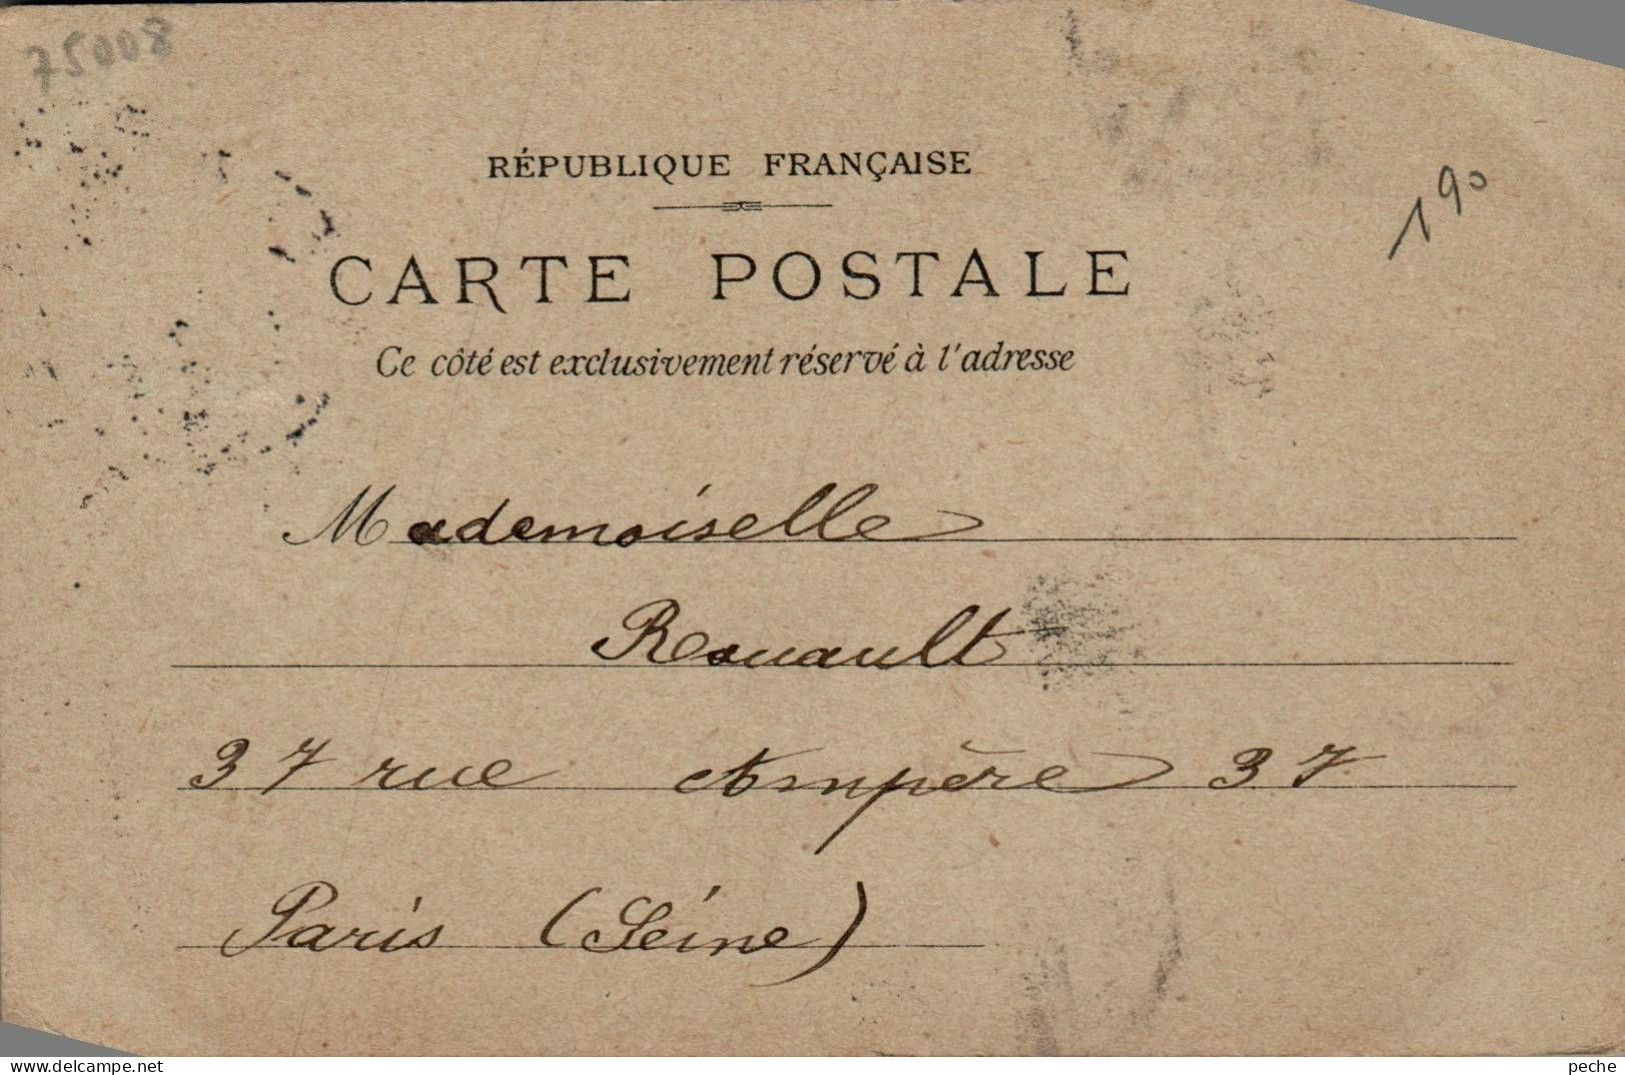 75008
RÉPUBLIQUE FRANÇAISE
190
CARTE POSTALE
Ce côté est exclusivement réservé à l'adresse
Mademoiselle
Rouault
37 rue Ampère 37
Paris (Seine)
delcampe.net
peche